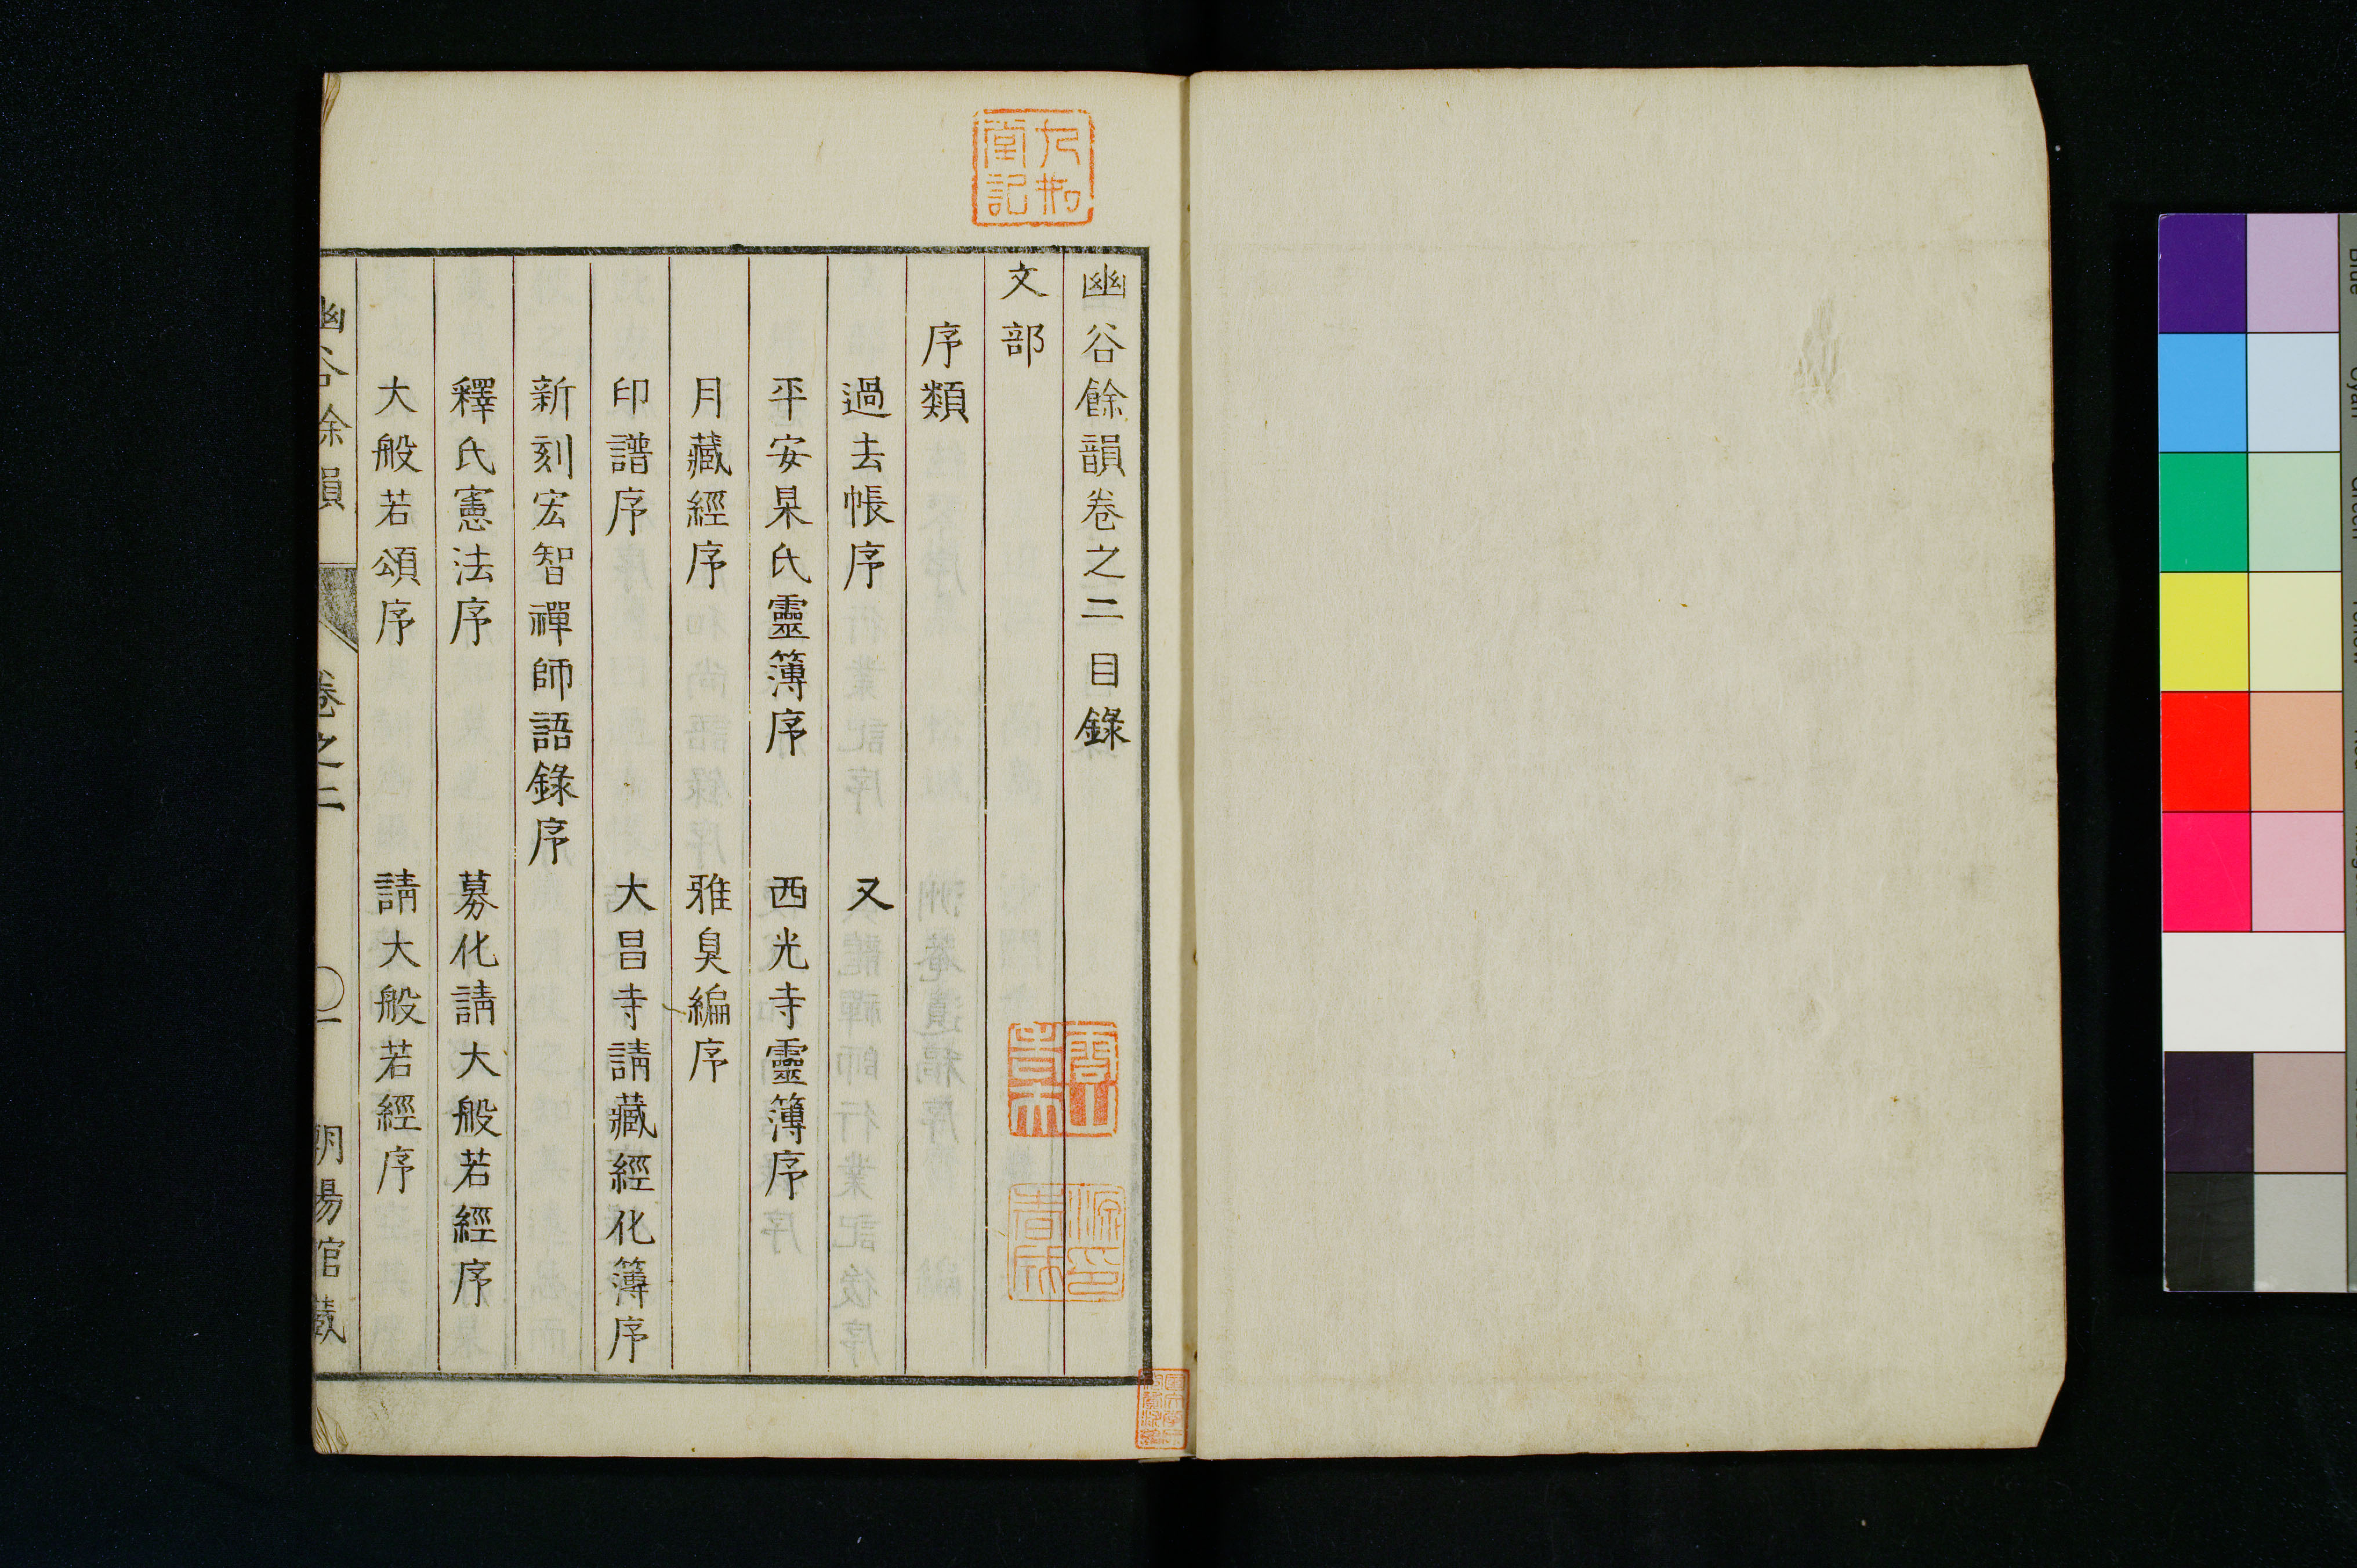 幽谷餘韻卷之二目錄
文部
序類
過去帳序　又
平安杲氏靈簿序　西光寺靈簿序
月藏經序　雅臭編序
印譜序　大昌寺請藏經化簿序
新刻宏智禪師語錄序
釋氏憲法序　募化請大般若經序
大般若頌序　請大般若經序
幽谷餘韻　卷之二　〇一　朝陽館藏